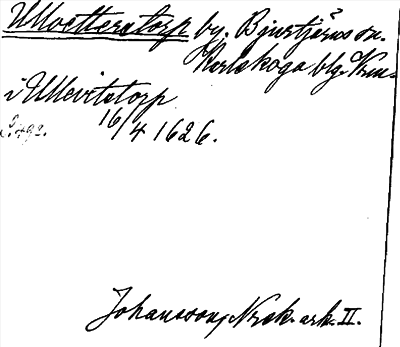 Ullvetterstorp by, Bjurtjärns sn.
Karlskoga blg. Krm.
i Ullevitstorp
16/4 1626.
Johansson, Nrsk. ark. II.